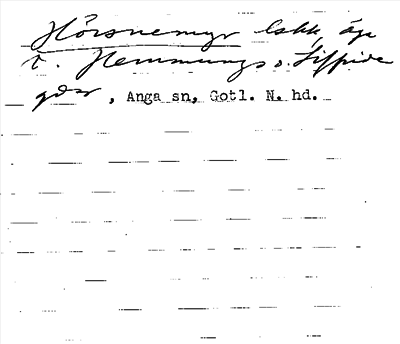 Hörsnemyr lskk, äga
t. Hemmungs o. Siffride
gdr, Anga sn, Gotl. N. hd.